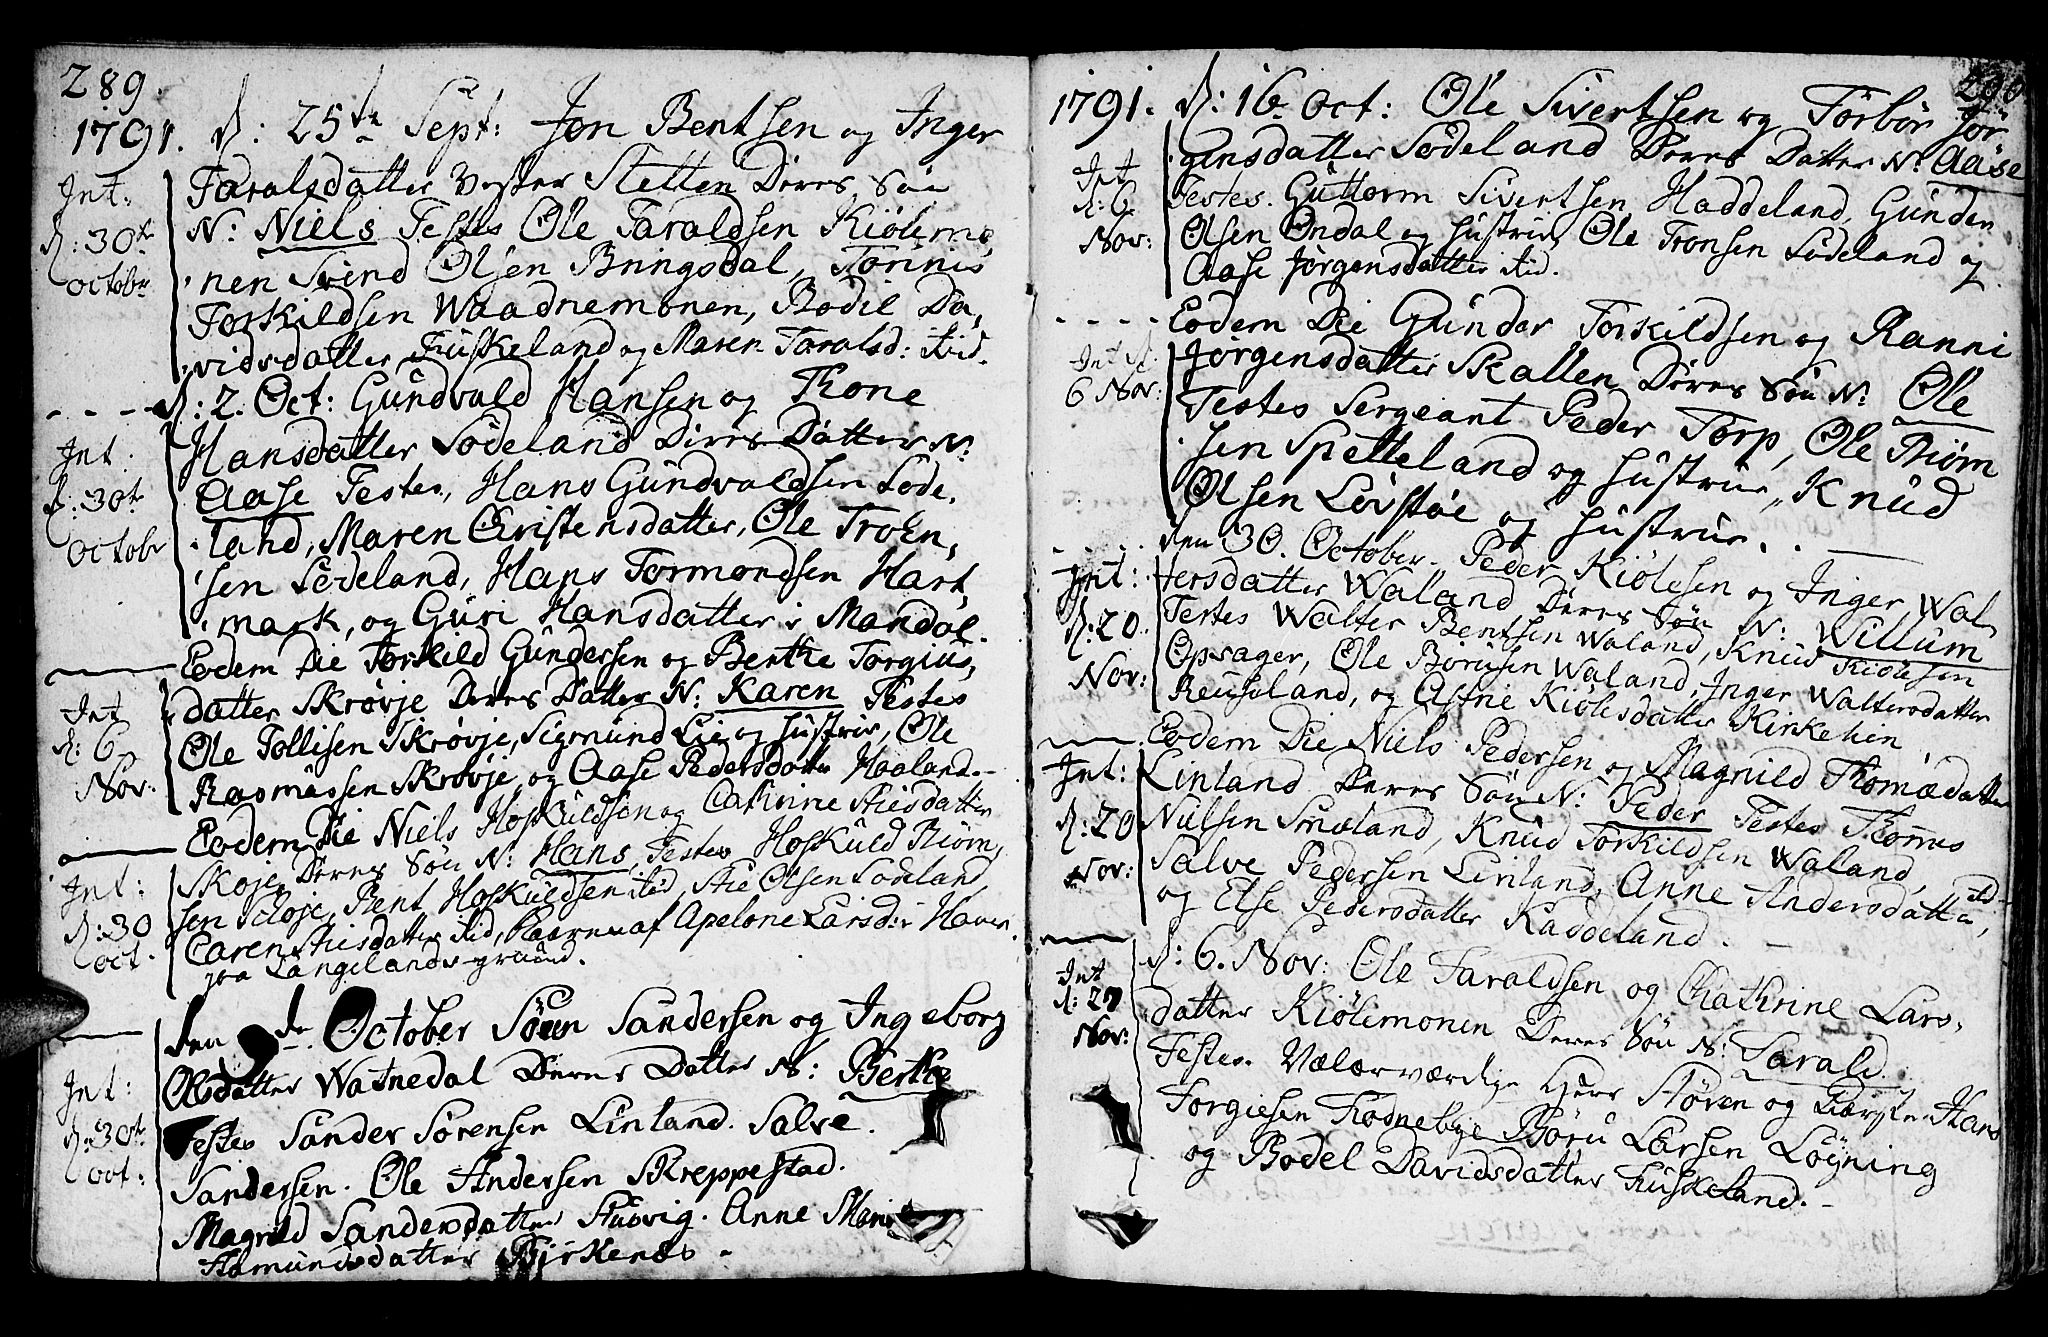 289.
1791. d: 25te Sept: Jon Bentsen og Inger
Int: Taralsdatter Vester Stelten Deres Søn
d: 30te N: Niels Testes Ole Taraldsen Kiølemo
octobr nen Svend Olsen Bringsdal, Tønnis
Torkildsen Waadnemonen, Bodil Da,
vidsdatter Fuskeland og Maren Taralsd: ibid.
d: 2. Oct: Gundvald Hansen og Thone
Int. Hansdatter Sødeland Deres Datter N:
d: 30t Aase Testes, Hans Gundvaldsen Søde,
October land, Maren Christensdatter, Ole Troen,
sen Sødeland, Hans Tormondsen Hart,
mark, og Guri Hansdatter i Mandal.
Eodem Die Torkild Gundersen og Berthe Torgius,
Int datter Skrøvje Deres Datter N: Karen Testes
d: 6 Ole Tollisen Skrøvje, Sigmund Lie og Hustrue, Ole
Nov: Rasmussen Skrøvje, og Aase Pedersdatter Haaland.
Eodem Die Niels Hoskuldsen og Cathrine Stiesdatter
Int: Skoje Deres Søn N: Hans, Testes Hoskuld Biørn,
d: 30 sen Skoje, Bent Hoskuldsen ibid, Stie Olsen Sodeland,
oct. Caren Stiesdatter ibid, Baaren af Apelone Larsd: Haven
fra Langelands-grund.
den 9de October Sören Sandersen og Ingeborg
Int: Olsdatter Watnedal Deres Datter N: Berthe
d: 30te Testes Sander Sørensen Linland. Salve
oct: Sandersen. Ole Andersen Skreppestad.
Magnild Sandersdatter Stusvig. Anne Marie
Aamundsdatter Birkenæs.
290
1791. d: 16. Oct: Ole Sivertsen og Torbør Jør
Int gensdatter Sødeland Deres Datter N: Aase
d: 6 Testes. Guttorm Sivertsen Haddeland, Gunder
Nov: Olsen Øndal og Hustrue, Ole Tronsen Sødeland og
Aase Jørgensdatter ibid.
Eodem Die Gunder Torkildsen og Ranni
Int d. Jørgensdatter Skallen Deres Søn N: Ole
6 Nov: Testes Sergeant Peder Torp, Ole Biørn
sen Spetteland og Hustrue, Knud
Olsen Løvstøe og Hustrue.
den 30. October. Peder Kiølesen og Inger Wal,
Int: tersdatter Waland Deres Søn N: Willum
d: 20. Testes Walter Bentsen Waland, Knud Kiølesen
Nov: Opsager, Ole Børusen Waland, Inger Waltersdatter
Reuseland, og Astrie Kiølesdatter Kirkehein.
Eodem Die Niels Pedersen og Magnild Thomædatter
Int: Linland Deres Søn N: Peder Testes Thomes
d: 20 Nielsen Smeland, Knud Torkildsen Waland,
Nov: Salve Pedersen Linland, Anne Andersdatter ibid
og Else Pedersdatter Kaddeland.
d: 6. Nov: Ole Taraldsen og Chathrine Lars,
Int d: 27 datter Kiølemonen Deres Søn N: Tarald.
Nov: Testes. Velærværdige Herr Støren og Kiæreste Hans
Torgiesen Fodnebye Børu Larsen Løgning
og Bodel Davidsdatter Fuskeland.